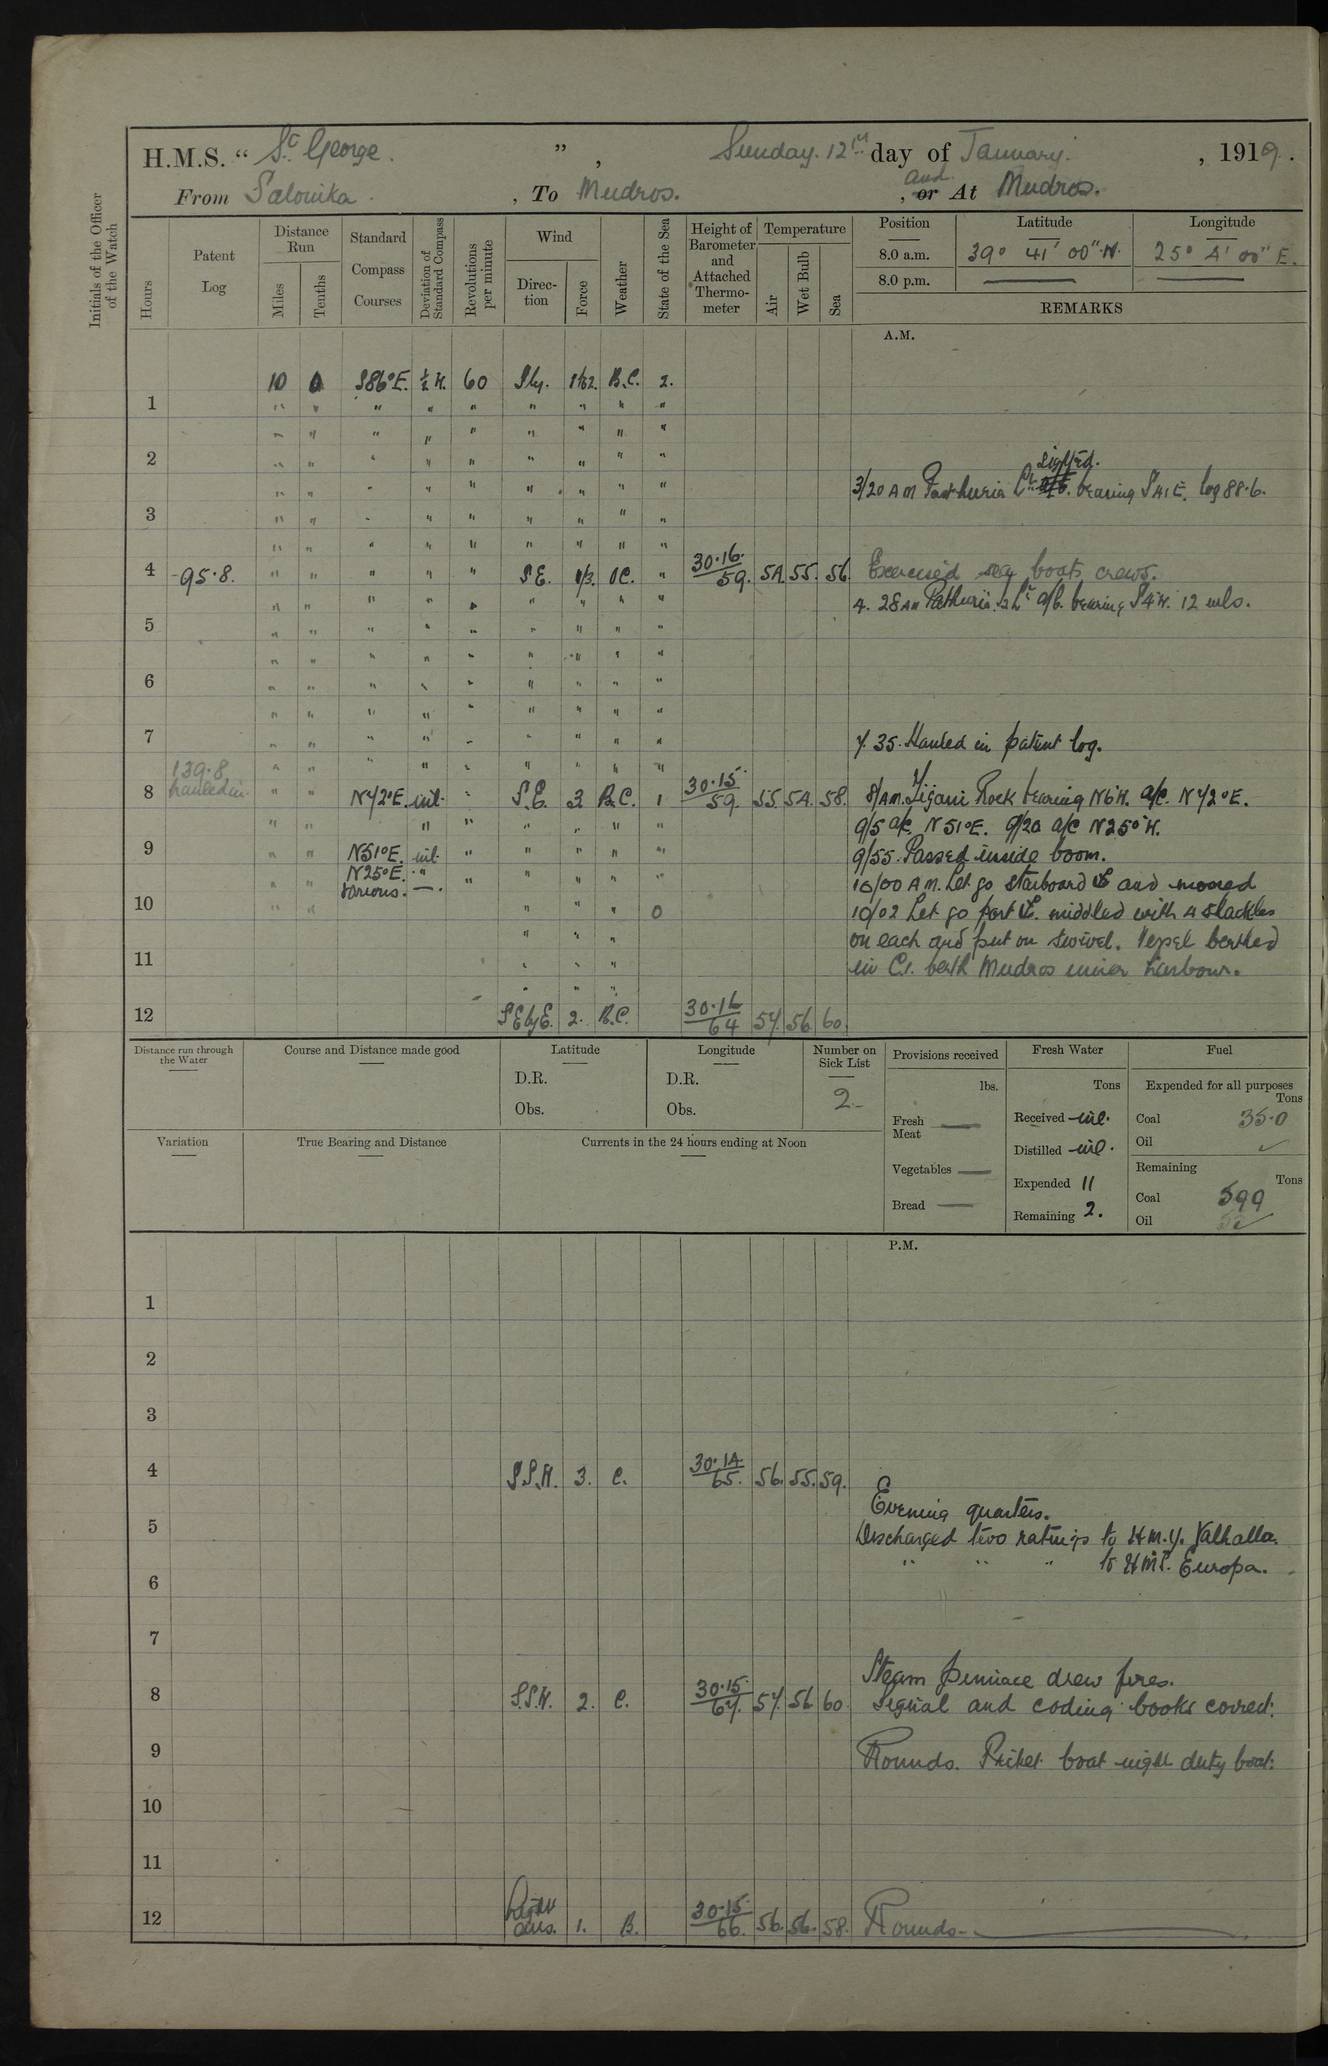 H.M.S. “ St George. ” , Sunday. 12th day of January. , 1919.
From Salonika. , To Mudros. , or and At Mudros.
Initials of the Officer of the Watch
Hours
Patent Log
Distance Run
Miles
Tenths
Standard Compass Courses
Deviation of Standard Compass
Revolutions per minute
Wind
Direction
Force
Weather
State of the Sea
Height of Barometer and Attached Thermometer
Temperature
Air
Wet Bulb
Sea
Position Latitude Longitude
8.0 a.m. 39° 41' 00" N. 25° 4' 00" E.
8.0 p.m. —— ——
REMARKS
A.M.
10 0 S86°E. ½ W. 60 Sly. 1to2. B.C. 2.
1
2
3/20 AM Lt. sighted. bearing S41E. log 88.6.
3
4 95.8. " " " " " S.E. 1/3. OC. " 30.16. 59. 54. 55. 56 Exercised sea boats crews.
4. 28 AM Lt a/b. bearing S4°W. 12 mls.
5
6
7
7. 35. Hauled in patent log.
139.8
8 hauled in. " " N42°E. nil. " S.E. 3 B.C. 1 30.15. 59. 55. 54. 58. 8/AM. Tigani Rock bearing N6°W. a/c. N42°E.
9/5 a/c. N51°E. 9/20 a/c N25°W.
9 N51°E. nil. 9/55. Passed inside boom.
N25°E. "
various. —. 10/00 AM. Let go starboard and moored
10 0 10/02 Let go port. middled with 4 shackles
on each and put on swivel. Vessel berthed
11 in C.1. berth Mudros inner harbour.
12 SEbyE. 2. B.C. 30.16 64 57. 56. 60.
Distance run through the Water
Course and Distance made good
Latitude
D.R.
Obs.
Longitude
D.R.
Obs.
Number on Sick List
2.
Provisions received
lbs.
Fresh Meat ——
Vegetables ——
Bread ——
Fresh Water
Tons
Received nil.
Distilled nil.
Expended 11
Remaining 2.
Fuel
Expended for all purposes
Tons
Coal 35.0
Oil ✓
Remaining
Tons
Coal 599
Oil
Variation
True Bearing and Distance
Currents in the 24 hours ending at Noon
P.M.
1
2
3
4 S.S.W. 3. C. 30.14 65. 56. 55. 59.
Evening quarters.
5 Discharged two ratings to H.M.Y. Valhalla.
" " " to H.M.S. Europa.
6
7
Steam pinnace drew fires.
8 S.S.W. 2. C. 30.15. 67. 57. 56 60. Signal and coding books correct.
9 Rounds. Picket boat night duty boat.
10
11
12 Light airs. 1. B. 30.15. 66. 56. 56. 58. Rounds.